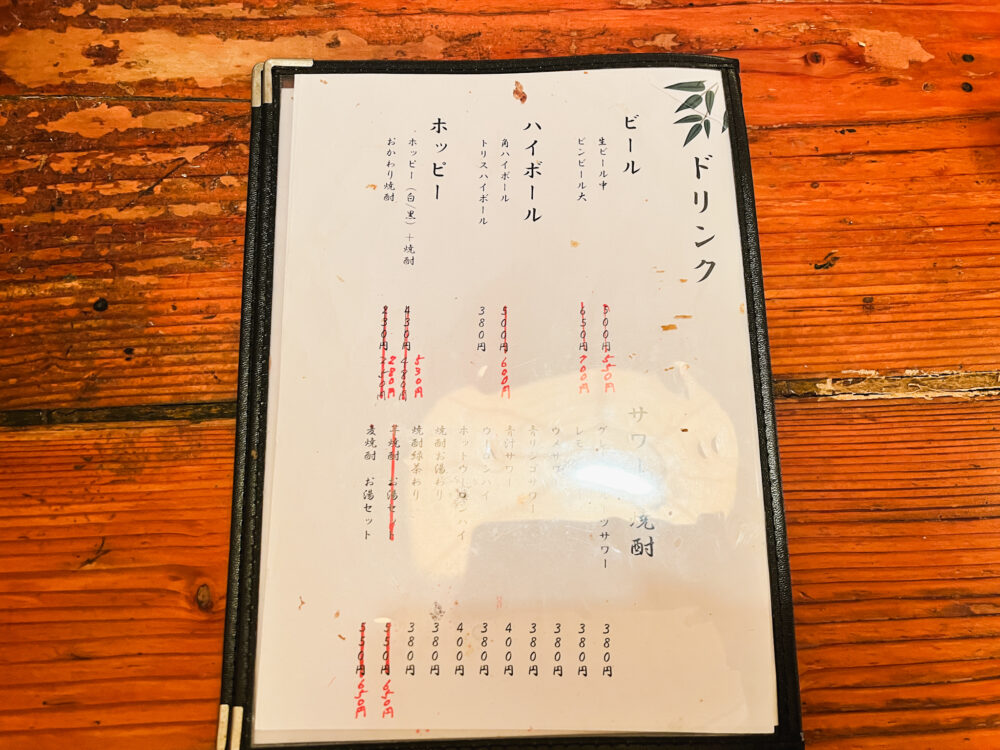 ドリンク
ビール
生ビール中 500円 550円
ビンビール大 650円 700円
ハイボール
角ハイボール 500円 600円
トリスハイボール 380円
ホッピー
ホッピー（白/黒）＋焼酎 430円 480円 530円
おかわり焼酎 230円 250円 280円
サワー 焼酎
サワー 380円
レモン 380円
ウメサワー 380円
青リンゴサワー 380円
青汁サワー 400円
ウーロンハイ 380円
ホットウーロンハイ 400円
焼酎お湯わり 380円
焼酎緑茶わり 380円
芋焼酎 お湯セット 550円 650円
麦焼酎 お湯セット 550円 650円